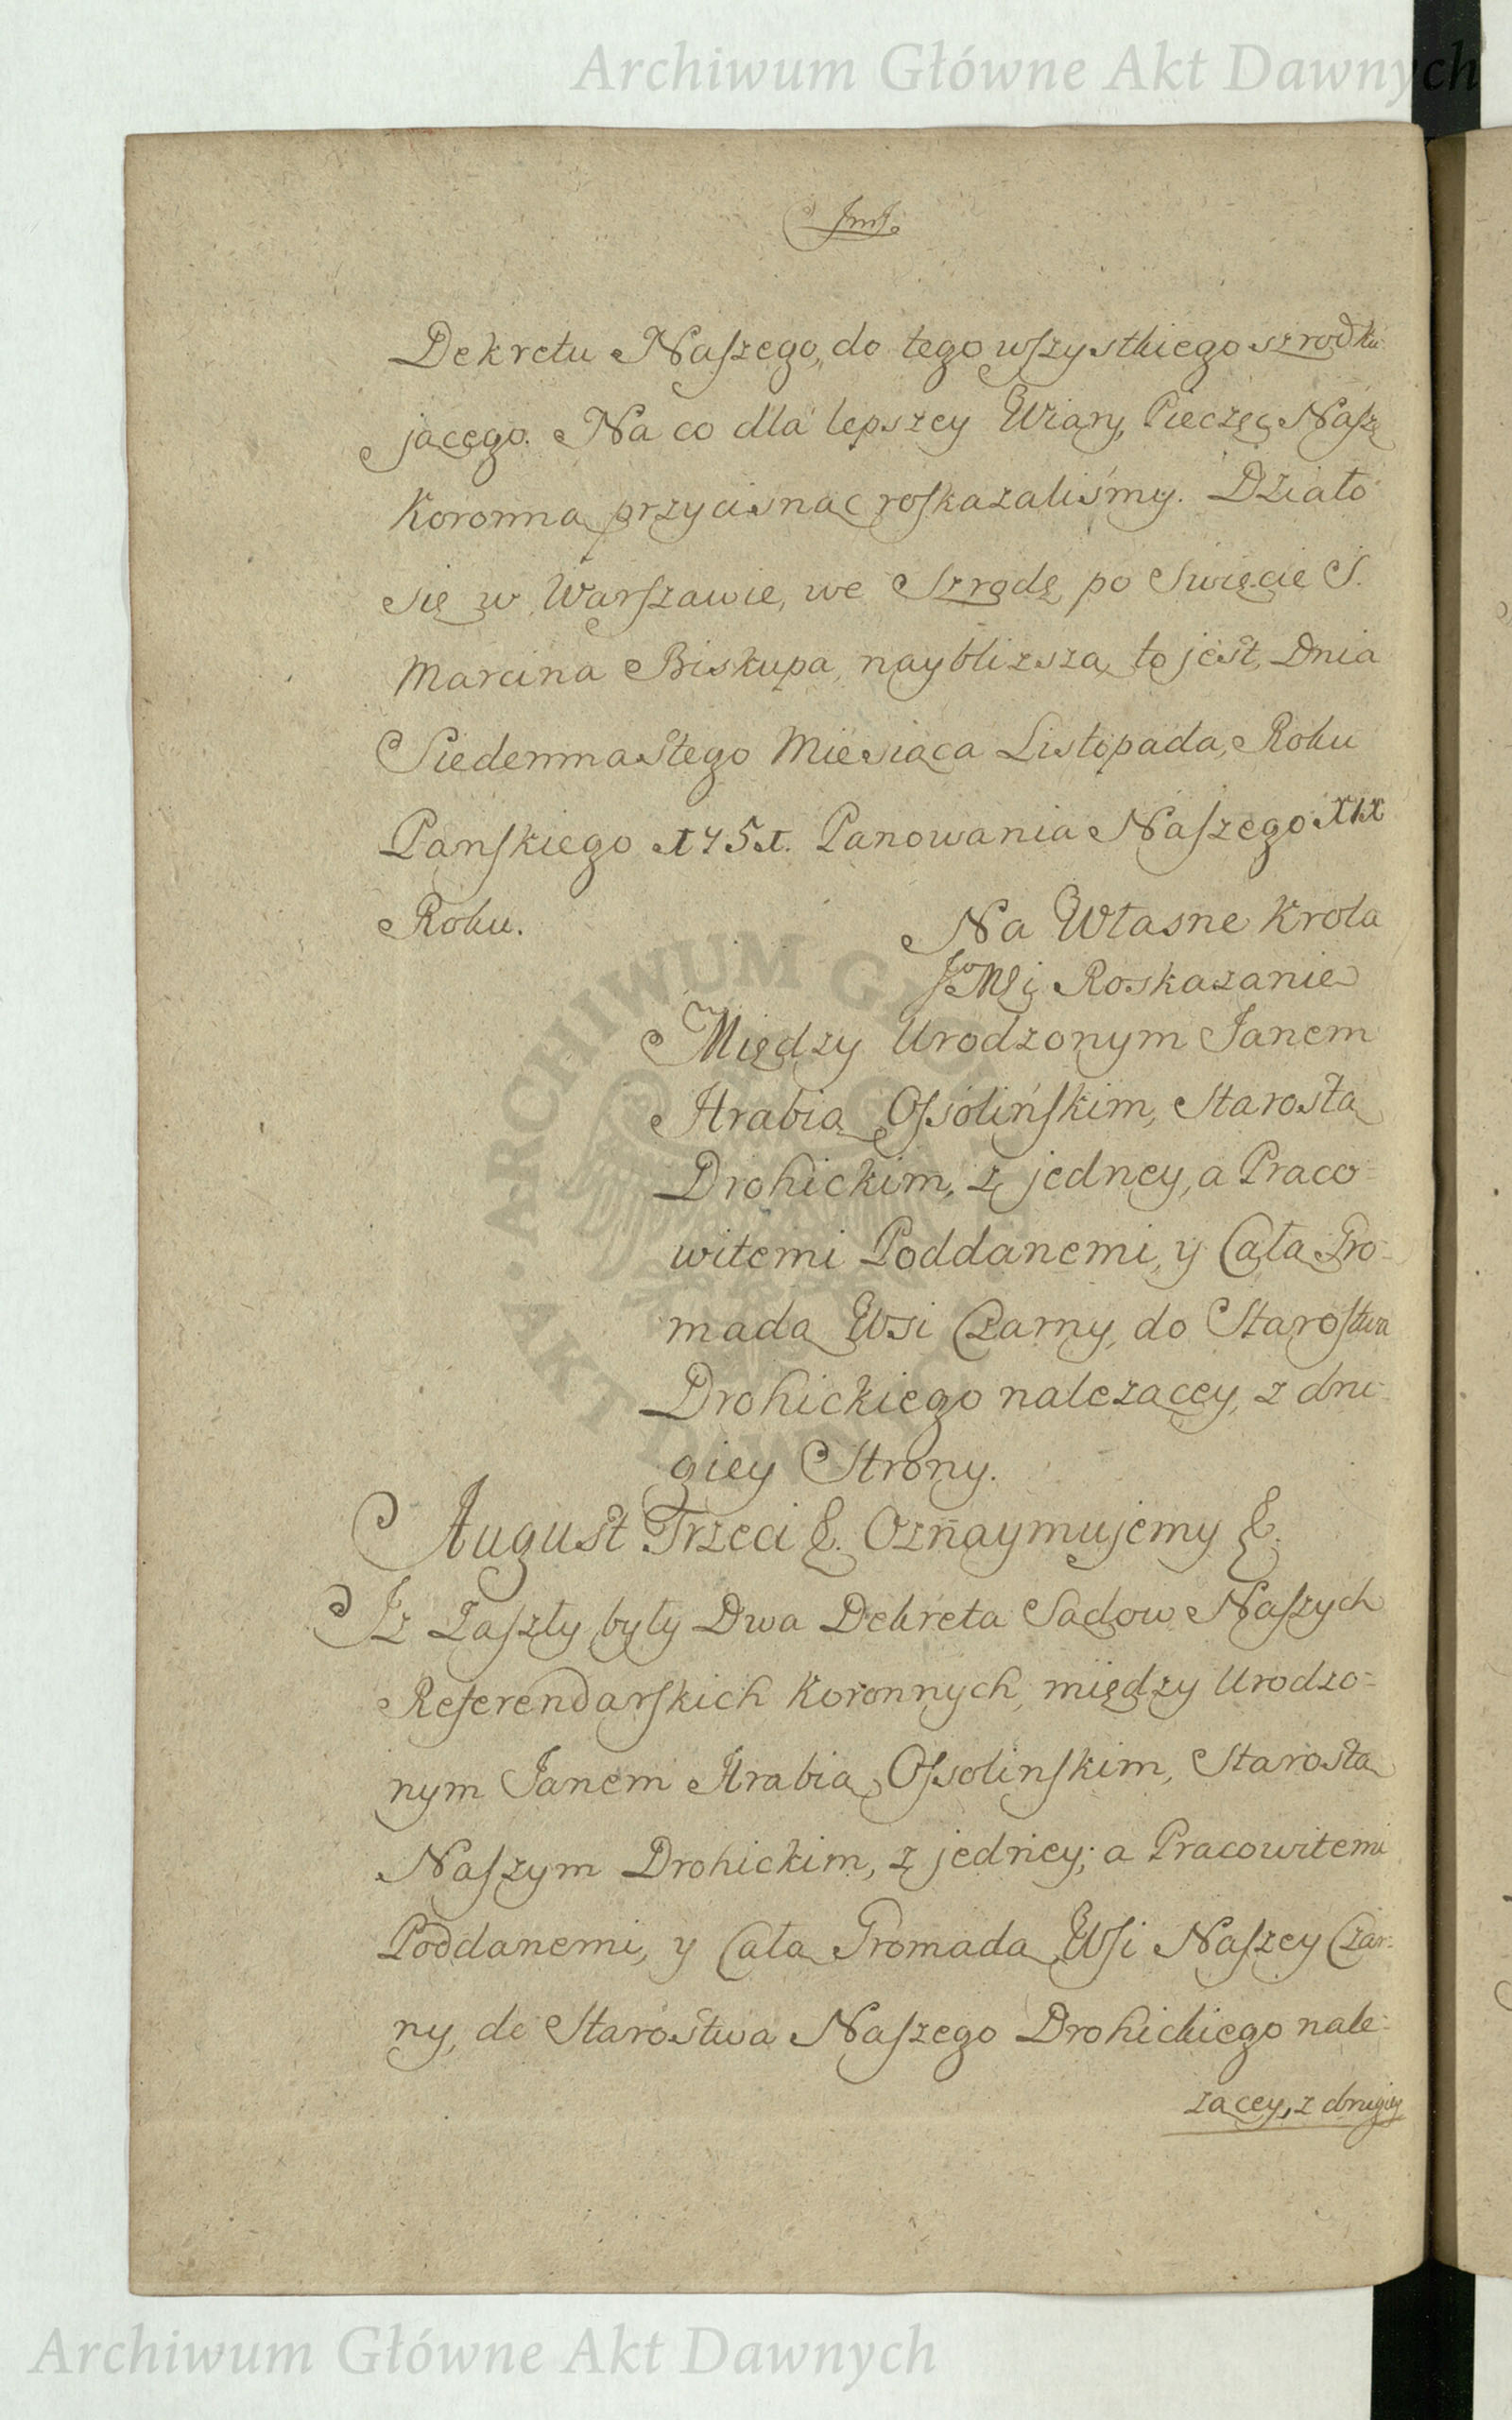 Archiwum Główne Akt Dawnych
Dekretu Naszego, do tego wszystkiego szrodku
jącego. Na co dla lepszey Wiary, Pieczęć Naszą
Koronną przycisnąć roskazaliśmy. Działo
się w Warszawie, we Szrodę po Swięcie S.
Marcina Biskupa, naybliższą, to jest, Dnia
Siedemnastego Miesiąca Listopada, Roku
Panskiego 1751. Panowania Naszego XIX
Roku.
Na Własne Krola
Roskazanie
Między Urodzonym Janem
Hrabią Ossolińskim, Starostą
Drohickim, z jedney, a Praco=
witemi Poddanemi, y Całą Gro=
madą Wsi Czarny, do Starostwa
Drohickiego należącey, z dru=
giey Strony.
August Trzeci &. Oznaymujemy &.
Iż Zaszły były Dwa Dekreta Sądow Naszych
Referendarskich Koronnych, między Urodzo=
nym Janem Hrabią Ossolinskim, Starostą
Naszym Drohickim, z jedney; a Pracowitemi
Poddanemi, y Całą Gromadą Wsi Naszey Czar=
ny, do Starostwa Naszego Drohickiego nale=
zącey, z drugiey
ARCHIWUM GŁÓWNE AKT DAWNYCH
Archiwum Główne Akt Dawnych